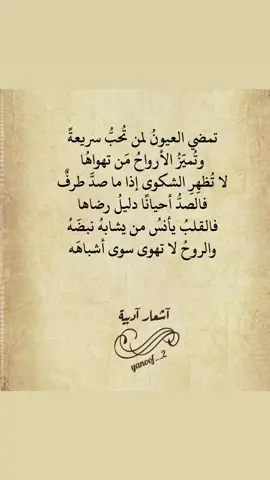 تمضي العيونُ لمن تُحبُّ سريعةً
وتُميّزُ الأرواحُ مَن تهواهُا
لا تُظهِرِ الشكوى إذا ما صدَّ طرفٌ
فالصدُّ أحيانًا دليلُ رضاها
فالقلبُ يأنسُ من يشابهُ نبضَهُ
والروحُ لا تهوى سوى أشباهَه
آشعار آدبية
yanoof__2